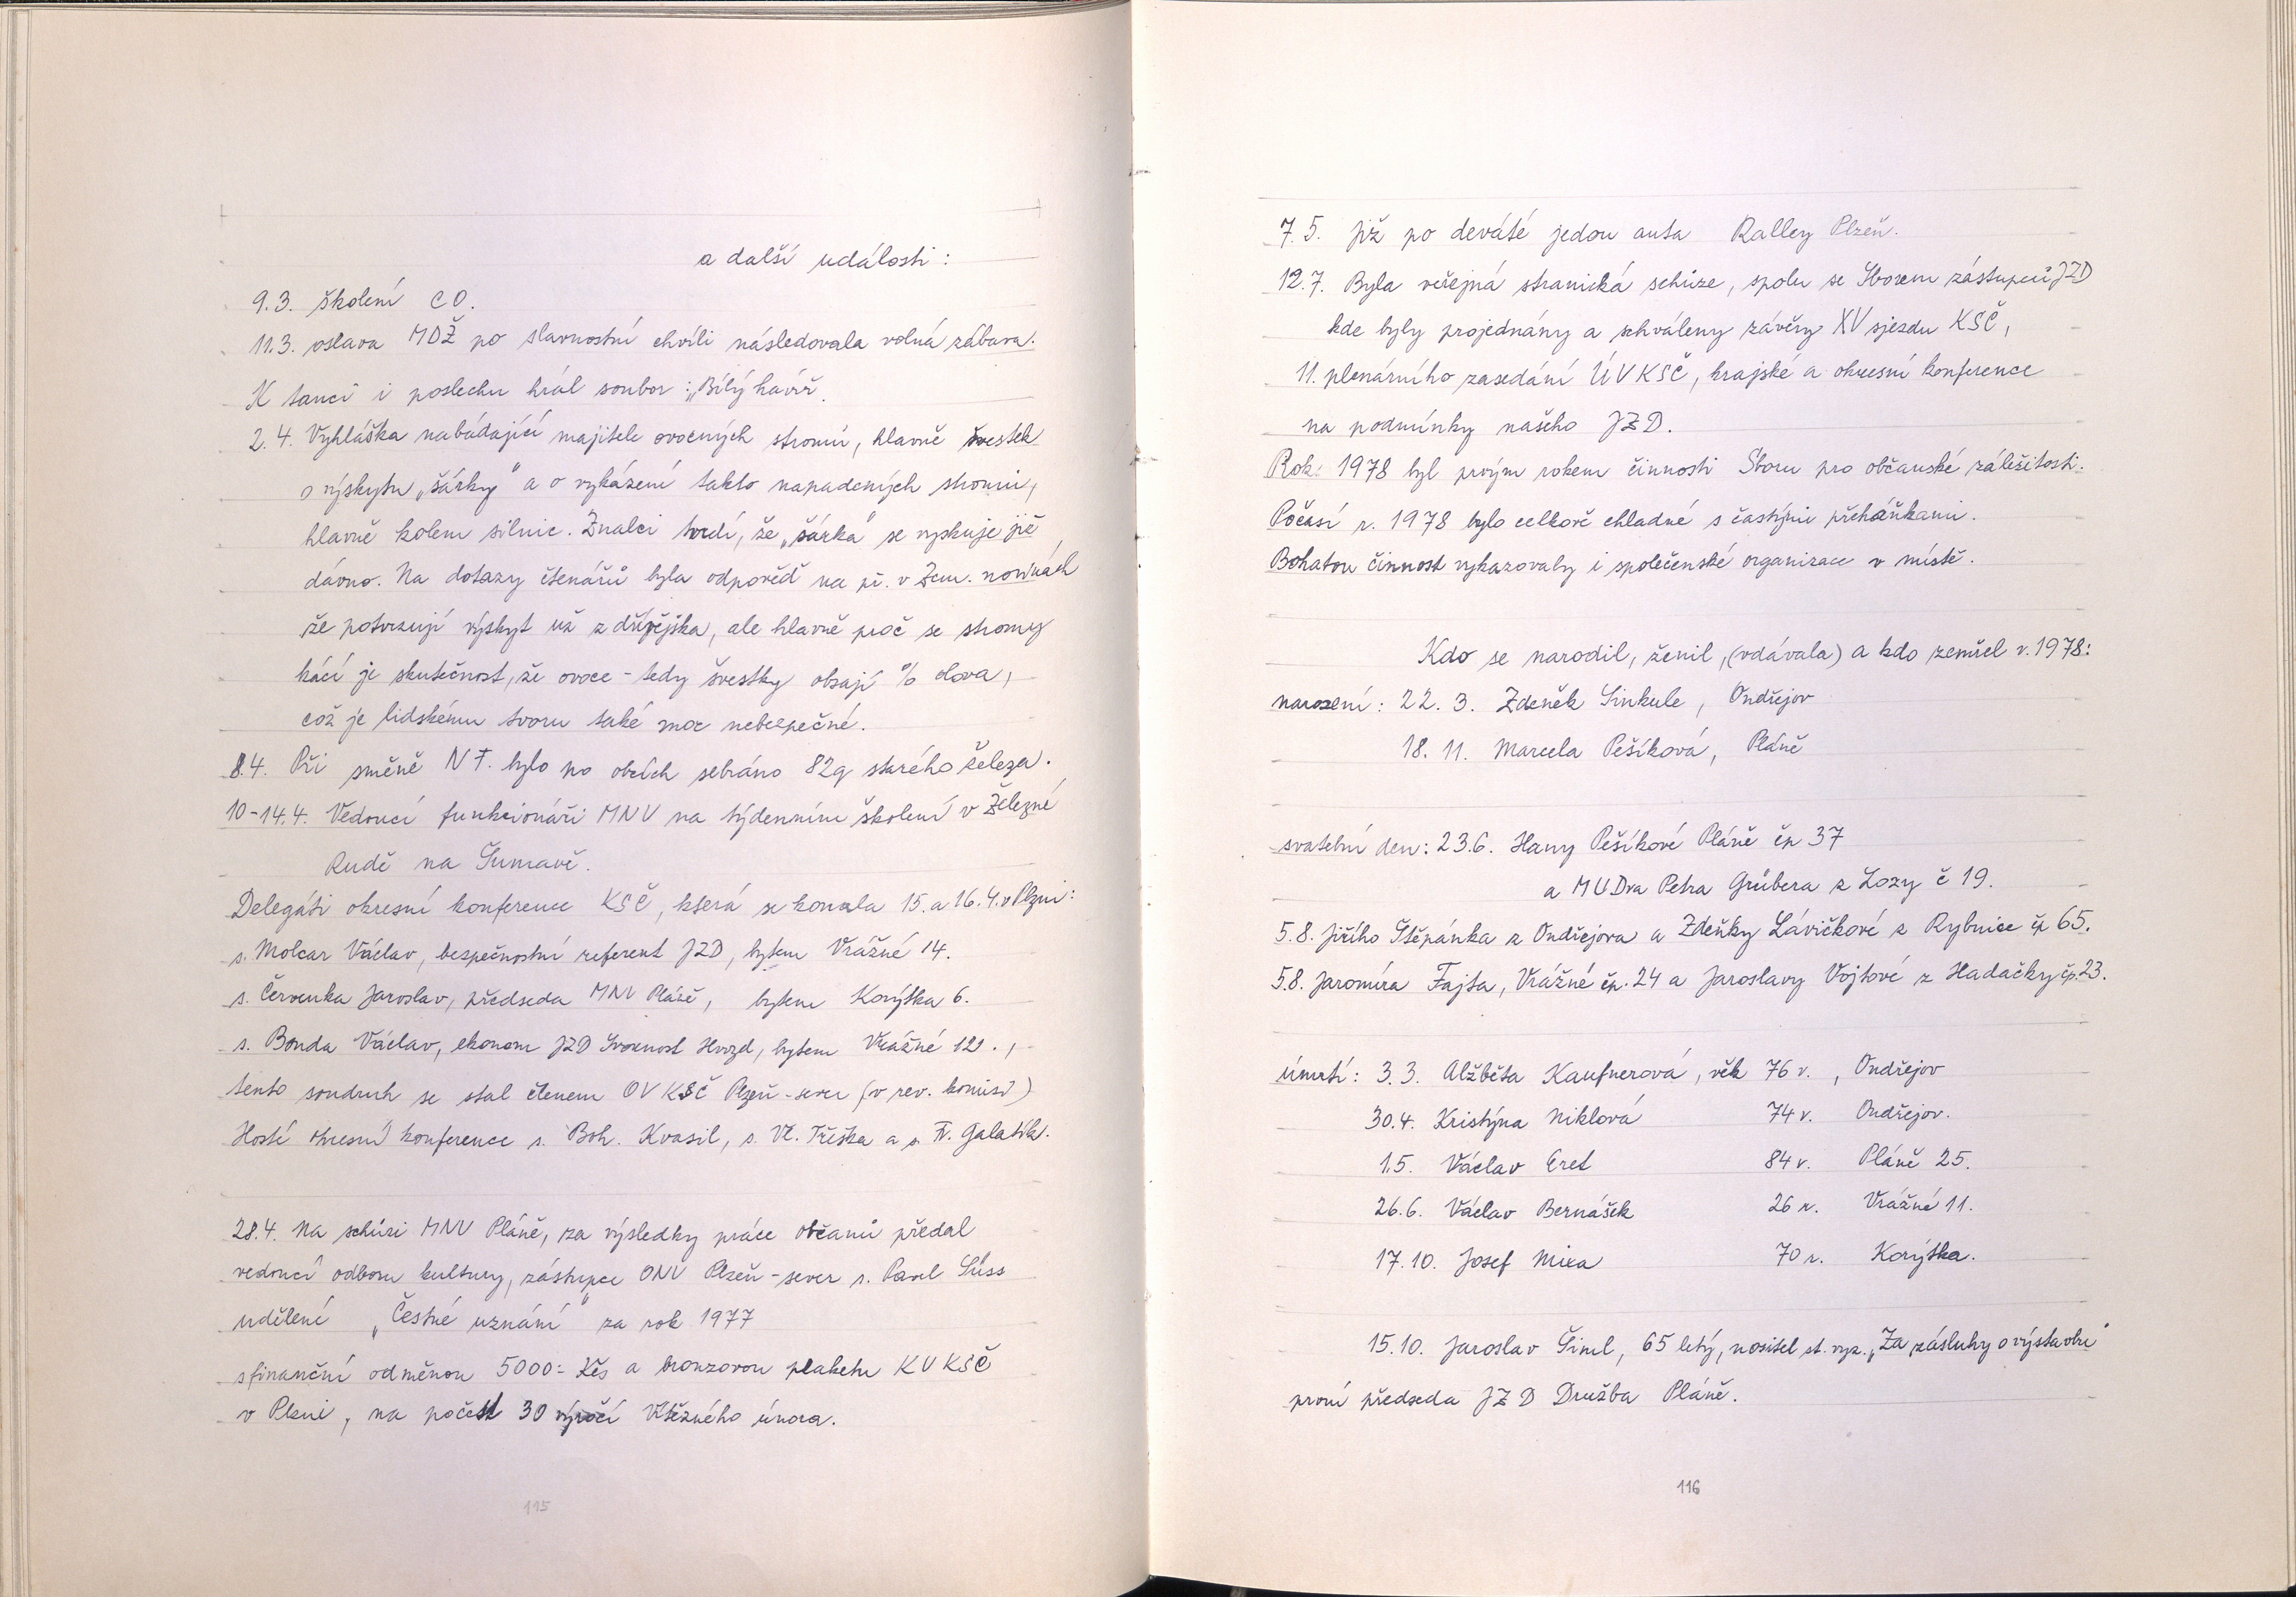 a další události:
9.3. školení CO.
11.3. oslava MDŽ po slavnostní chvíli následovala volná zábava.
K tanci i poslechu hrál soubor: „Bílý havíř.
2.4. Vyhláška nabádající majitele ovocných stromů, hlavně švestek
o výskytu „šárky" a o vykázení takto napadených stromů,
hlavně kolem silnic. Znalci tvrdí, že „šárka" se vyskuje již
dávno. Na dotazy čtenářů byla odpověď na př. v Zem. novinách
že potvrzují výskyt už z dřívějška, ale hlavně proč se stromy
kácí je skutečnost, že ovoce - tedy švestky obsají % olova,
což je lidskému tvoru také moc nebezpečné.
8.4. Při směně NF. bylo po obcích sebráno 82q starého železa.
10-14.4. Vedoucí funkcionáři MNV na týdenním školení v Železné
Rudě na Šumavě.
Delegáti okresní konference KSČ, která se konala 15. a 16.4. v Plzni:
s. Molcar Václav, bezpečnostní referent JZD, bytem Vrážné 14.
s. Červenka Jaroslav, předseda MNV Pláně, bytem Korýtka 6.
s. Bonda Václav, ekonom JZD Svornost Hvozd, bytem Vrážné 121.,
tento soudruh se stal členem OV KSČ Plzeň-sever (v rev. komisi)
Hosté okresní konference s. Boh. Kvasil, s. Vl. Tříska a s. Fr. Galatík.
28.4. Na schůzi MNV Pláně, za výsledky práce občanů předal
vedoucí odboru kultury, zástupce ONV Plzeň-sever s. Pavel Süss
udělení „Čestné uznání" za rok 1977
s finanční odměnou 5000= Kčs a bronzovou plaketu KV KSČ
v Plzni, na počest 30 výročí Vítězného února.
115
7.5. Již po deváté jedou auta Ralley Plzeň.
12.7. Byla veřejná stranická schůze, spolu se Sborem zástupců JZD
kde byly projednány a schváleny závěry XV sjezdu KSČ,
11. plenárního zasedání ÚV KSČ, krajské a okresní konference
na podmínky našeho JZD.
Rok 1978 byl prvým rokem činnosti Sboru pro občanské záležitosti.
Počasí r. 1978 bylo celkově chladné s častými přeháňkami.
Bohatou činnost vykazovaly i společenské organizace v místě.
Kdo se narodil, ženil, (vdávala) a kdo zemřel v. 1978:
narození: 22. 3. Zdeněk Sinkule, Ondřejov
18. 11. Marcela Pešíková, Pláně
svatební den: 23.6. Hany Pešíkové Pláně čp 37
a MUDra Petra Grübera z Lozy č 19.
5.8. Jiřího Štěpánka z Ondřejova a Zdeňky Lávičkové z Rybnice čp 65.
5.8. Jaromíra Fajta, Vrážné čp. 24 a Jaroslavy Vojtové z Hadačky čp. 23.
úmrtí: 3.3. Alžběta Kaufnerová, věk 76 r., Ondřejov
30.4. Kristýna Niklová 74 r. Ondřejov.
1.5. Václav Eret 84 r. Pláně 25.
26.6. Václav Bernášek 26 r. Vrážné 11.
17.10. Josef Mixa 70 r. Korýtka.
15.10. Jaroslav Šiml, 65 letý, nositel st. vyz. „Za zásluhy o výstavbu"
první předseda JZD Družba Pláně.
116